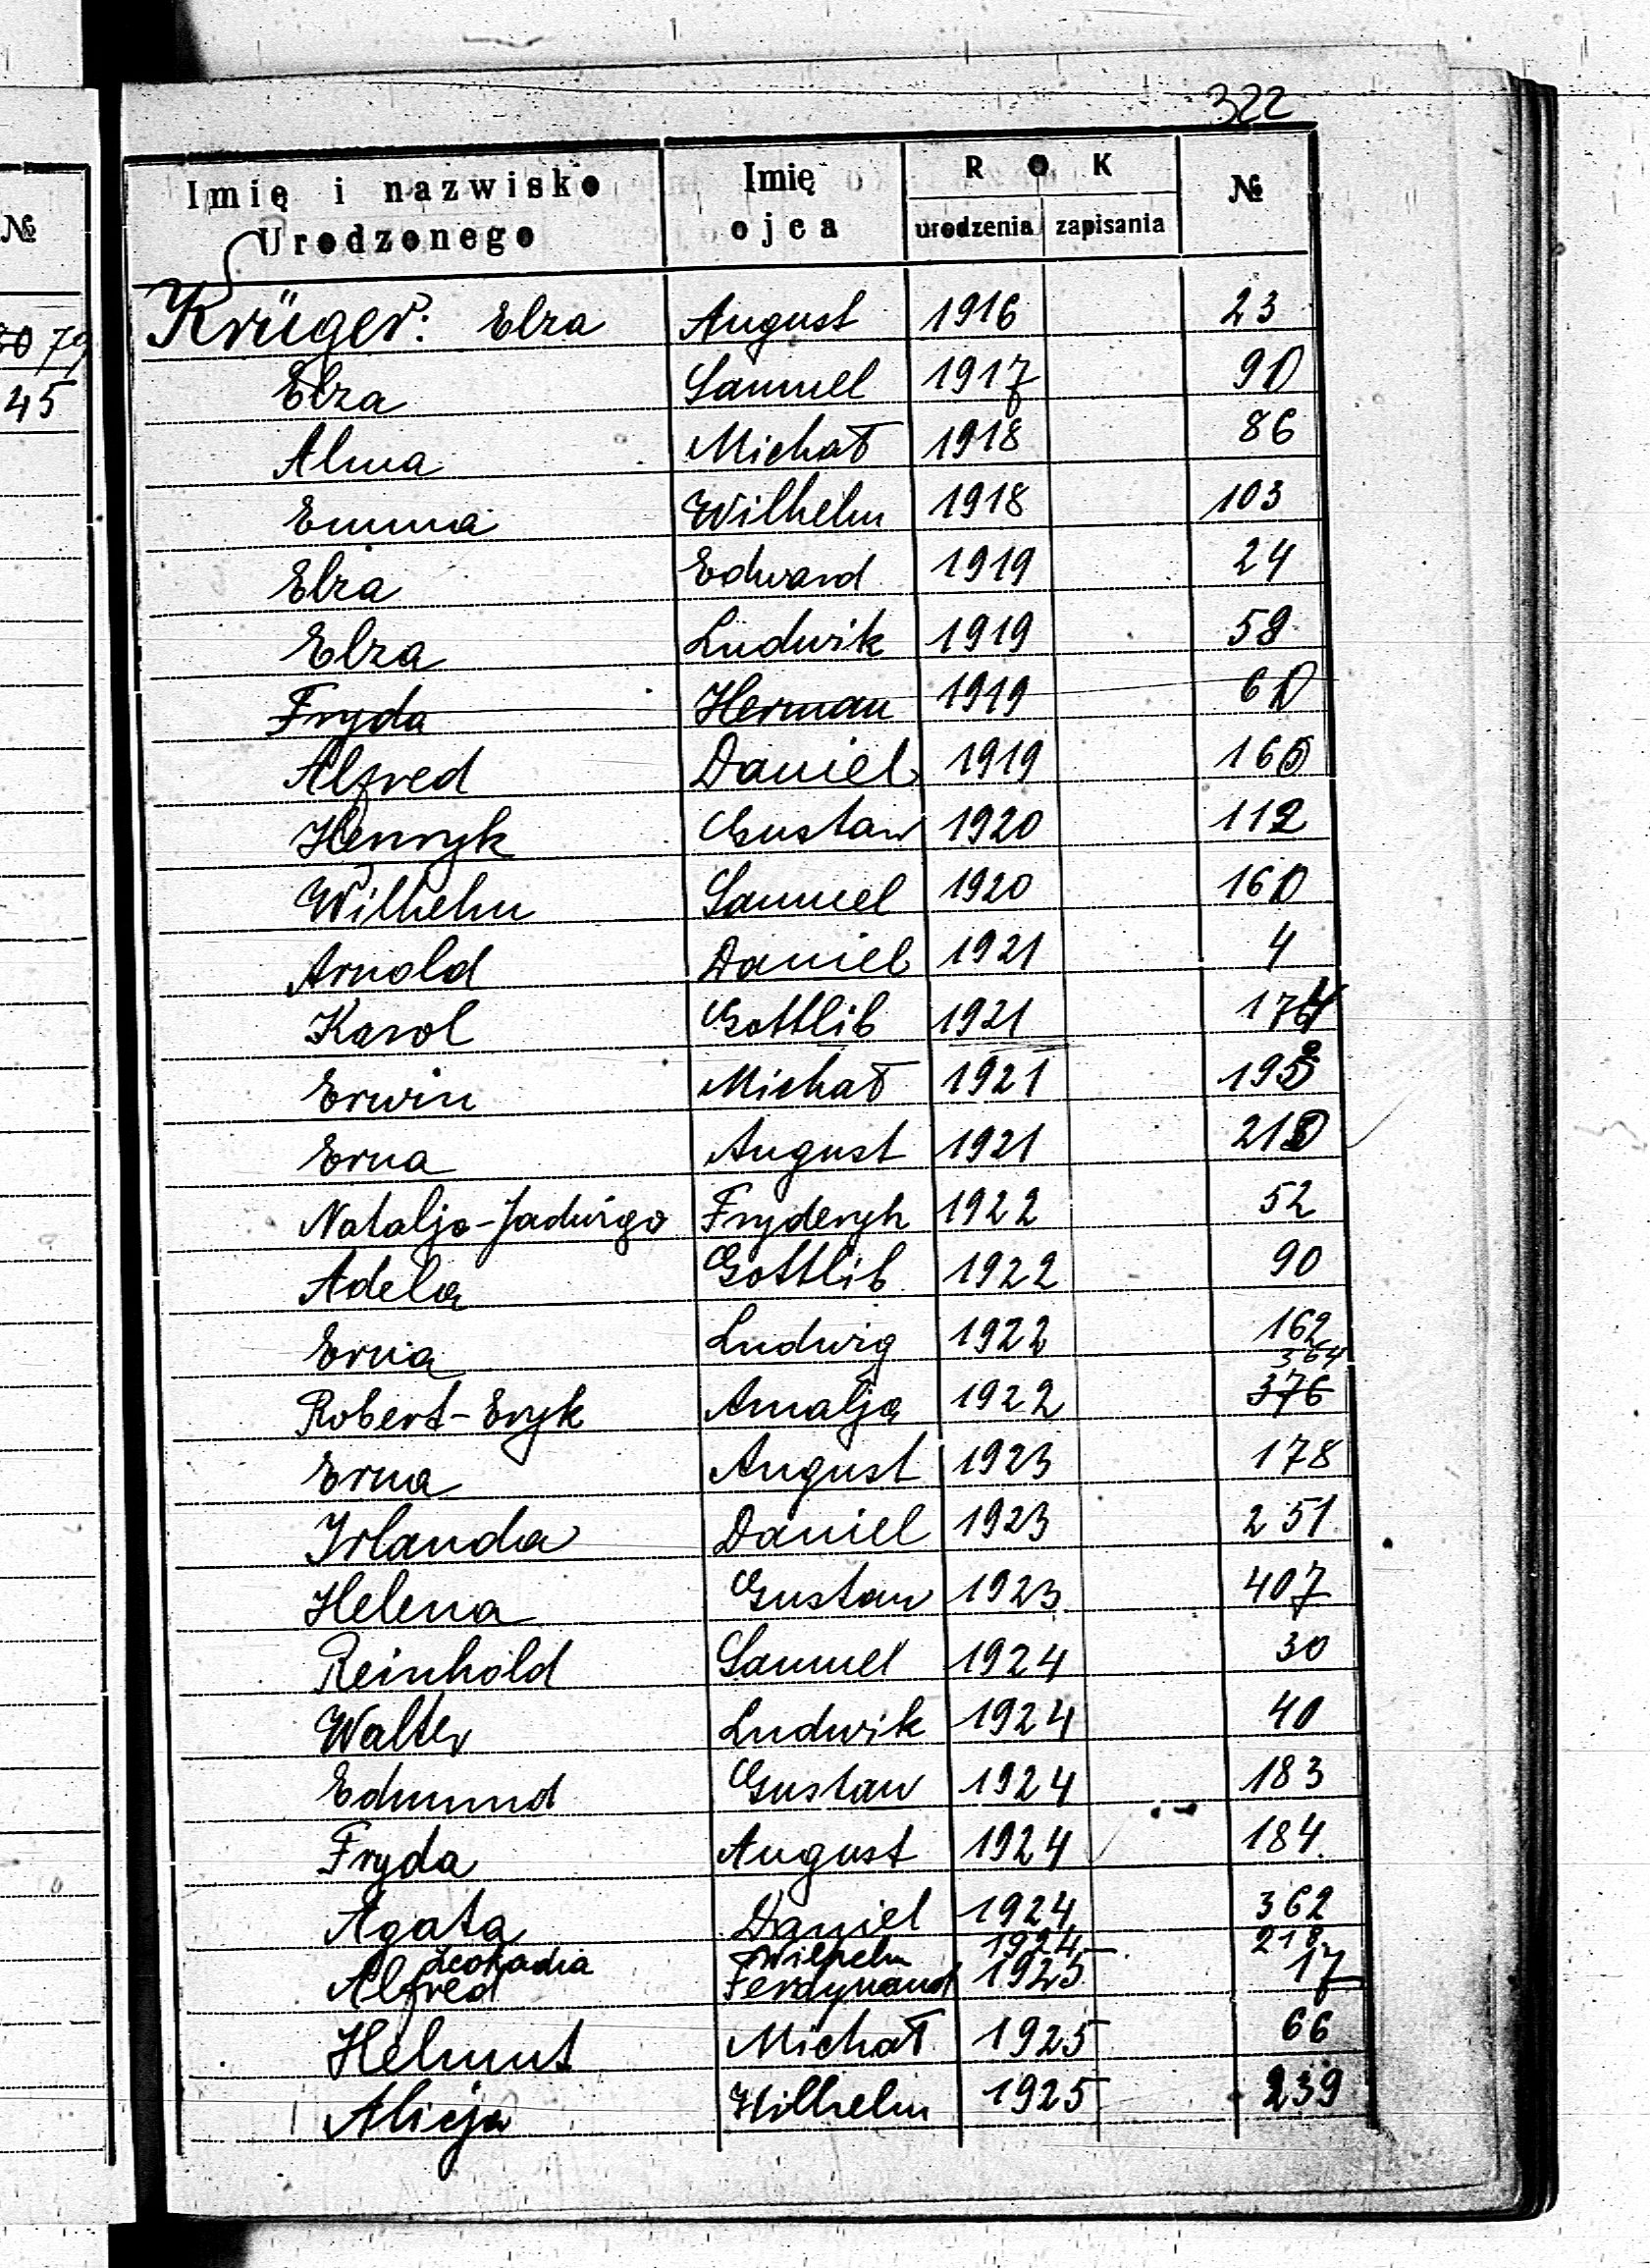 322
№
Imię i nazwisko Urodzonego | Imię ojca | ROK urodzenia | zapisania | №
79
45
Krüger: Elza August 1916 23
Elza Samuel 1917 90
Alma Michał 1918 86
Emma Wilhelm 1918 103
Elza Edward 1919 24
Elza Ludwik 1919 59
Fryda Herman 1919 60
Alfred Daniel 1919 160
Henryk Gustaw 1920 112
Wilhelm Samuel 1920 160
Arnold Daniel 1921 4
Karol Gottlib 1921 174
Erwin Michał 1921
Erna August 1921
Natalja-Jadwiga Fryderyk 1922 52
Adela Gottlib 1922 90
Erna Ludwig 1922 162
364
Robert-Eryk Amalja 1922 376
Erna August 1923 178
Irlanda Daniel 1923 251
Helena Gustaw 1923 407
Reinhold Samuel 1924 30
Walter Ludwik 1924 40
Edmund Gustaw 1924 183
Fryda August 1924 184
Agata Daniel 1924 362
Leokadia Wilhelm 1924 218
Alfred Ferdynand 1925 17
Helmut Michał 1925 66
Alicja Wilhelm 1925 239